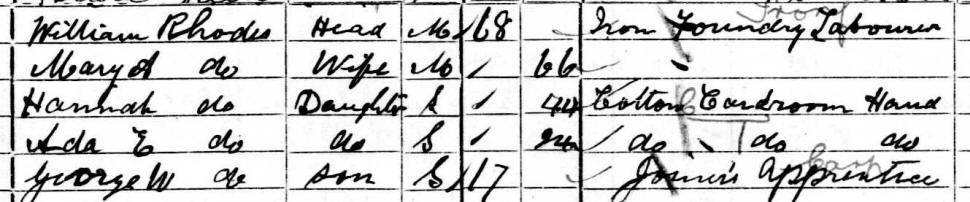 William Rhodes Head M 68 Iron Foundry Labourer
Mary A do Wife M 66
Hannah do Daughter S 44 Cotton Cardroom Hand
Ada E do do S 24 do do do
George W do Son S 17 Joiner's Apprentice